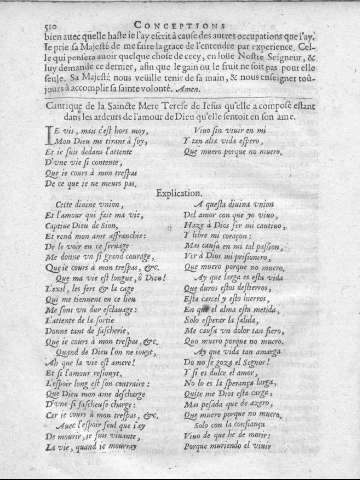 510 CONCEPTIONS
bien auec quelle haste ie l'ay escrit à cause des autres occupations que i'ay.
Ie prie sa Majesté de me faire la grace de l'entendre par experience. Cel-
le qui pensera auoir quelque chose de cecy, en louë Nostre Seigneur, &
luy demande ce dernier, afin que le gain ou le fruit ne soit pas pour elle
seule. Sa Majesté nous veuille tenir de sa main, & nous enseigner tou-
jours à accomplir sa sainte volonté. Amen.
Cantique de la Saincte Mere Terese de Iesus qu'elle a composé estant
dans les ardeurs de l'amour de Dieu qu'elle sentoit en son ame.
IE vis, mais c'est hors moy,
Mon Dieu me tirant à soy,
Et ie suis dedans l'attente
D'vne vie si contente,
Que ie cours à mon trespas
De ce que ie ne meurs pas.
Viuo sin viuir en mi
Y tan alta vida espero,
Que muero porque no muero.
Explication.
Cette diuine vnion,
Et l'amour qui fait ma vie,
Captiue Dieu de Sion,
Et rend mon ame affranchie:
De le voir en ce seruage
Me donne vn si grand courage,
Que ie cours à mon trespas, &c.
Que ma vie est longue, ô Dieu!
L'exil, les fers & la cage
Qui me tiennent en ce lieu
Me sont vn dur esclauage:
L'attente de la sortie
Donne tant de fascherie,
Que ie cours à mon trespas, &c.
Quand de Dieu l'on ne iouyt,
Ah que la vie est amere!
Et si l'amour resiouyt,
L'espoir long est son contraire:
Que Dieu mon ame descharge
D'vne si fascheuse charge:
Car ie cours à mon trespas, &c.
Auec l'espoir seul que i'ay
De mourir, ie suis viuante,
La vie, quand ie mourray
A questa diuina vnion
Del amor con que yo viuo,
Haze à Dios ser mi cautiuo,
Y libre mi coraçon:
Mas causa en mi tal passion,
Ver à Dios mi prisionero,
Que muero porque no muero.
Ay que larga es esta vida
Que duros estos destierros,
Esta carcel y estos hierros
En que el alma esta metida,
Solo esperar la salida,
Me causa vn dolor tan fiero,
Quo muero porque no muero.
Ay que vida tan amarga
Do no se goza el Señor!
Y si es dulce el amor,
No lo es la sperança larga,
Quite me Dios esta carga,
Mas pesada que de azero,
Que muero porque no muero.
Solo con la confiança
Viuo de que he de morir;
Porque muriendo el viuir